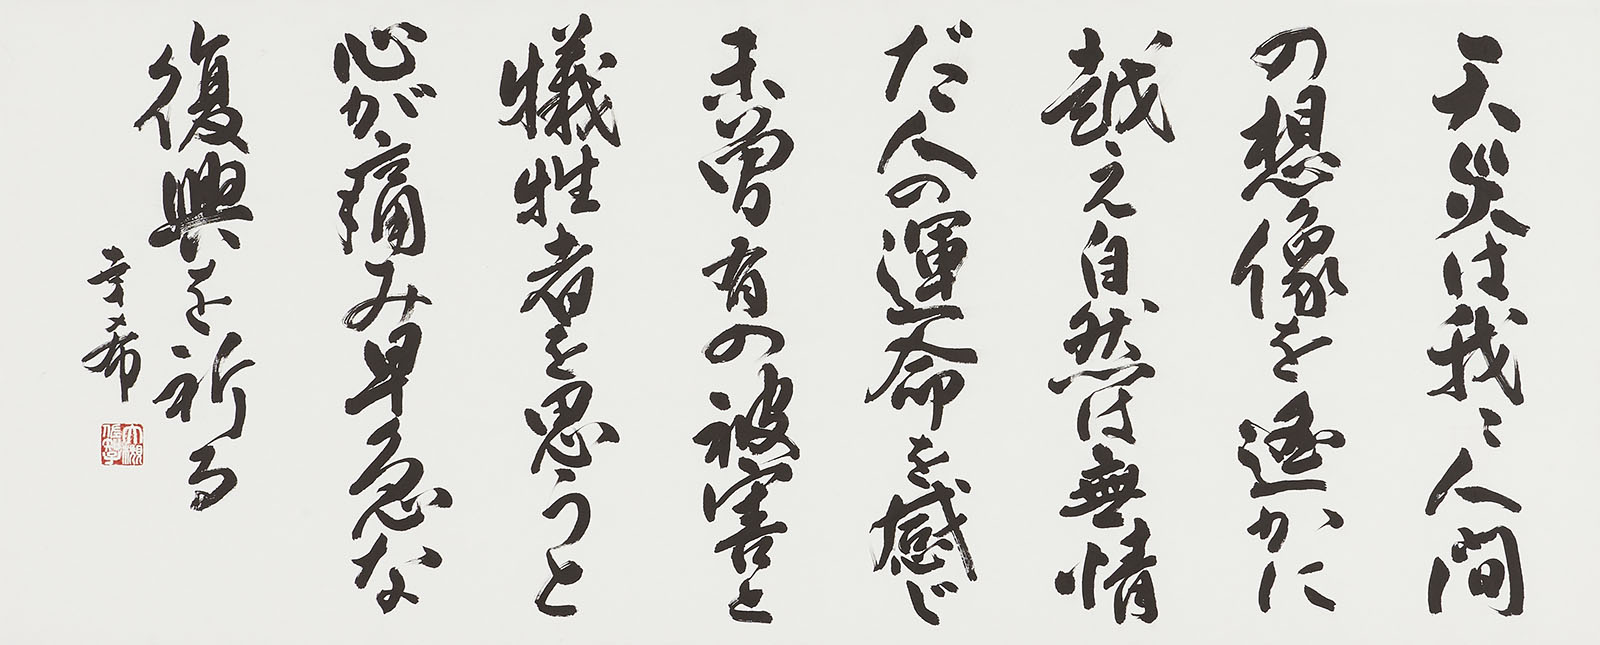 天災は我々人間
の想像を遥かに
越え自然は無情
だ人の運命を感じ
未曽有の被害と
犠牲者を思うと
心が痛み早急な
復興を祈る
幸希